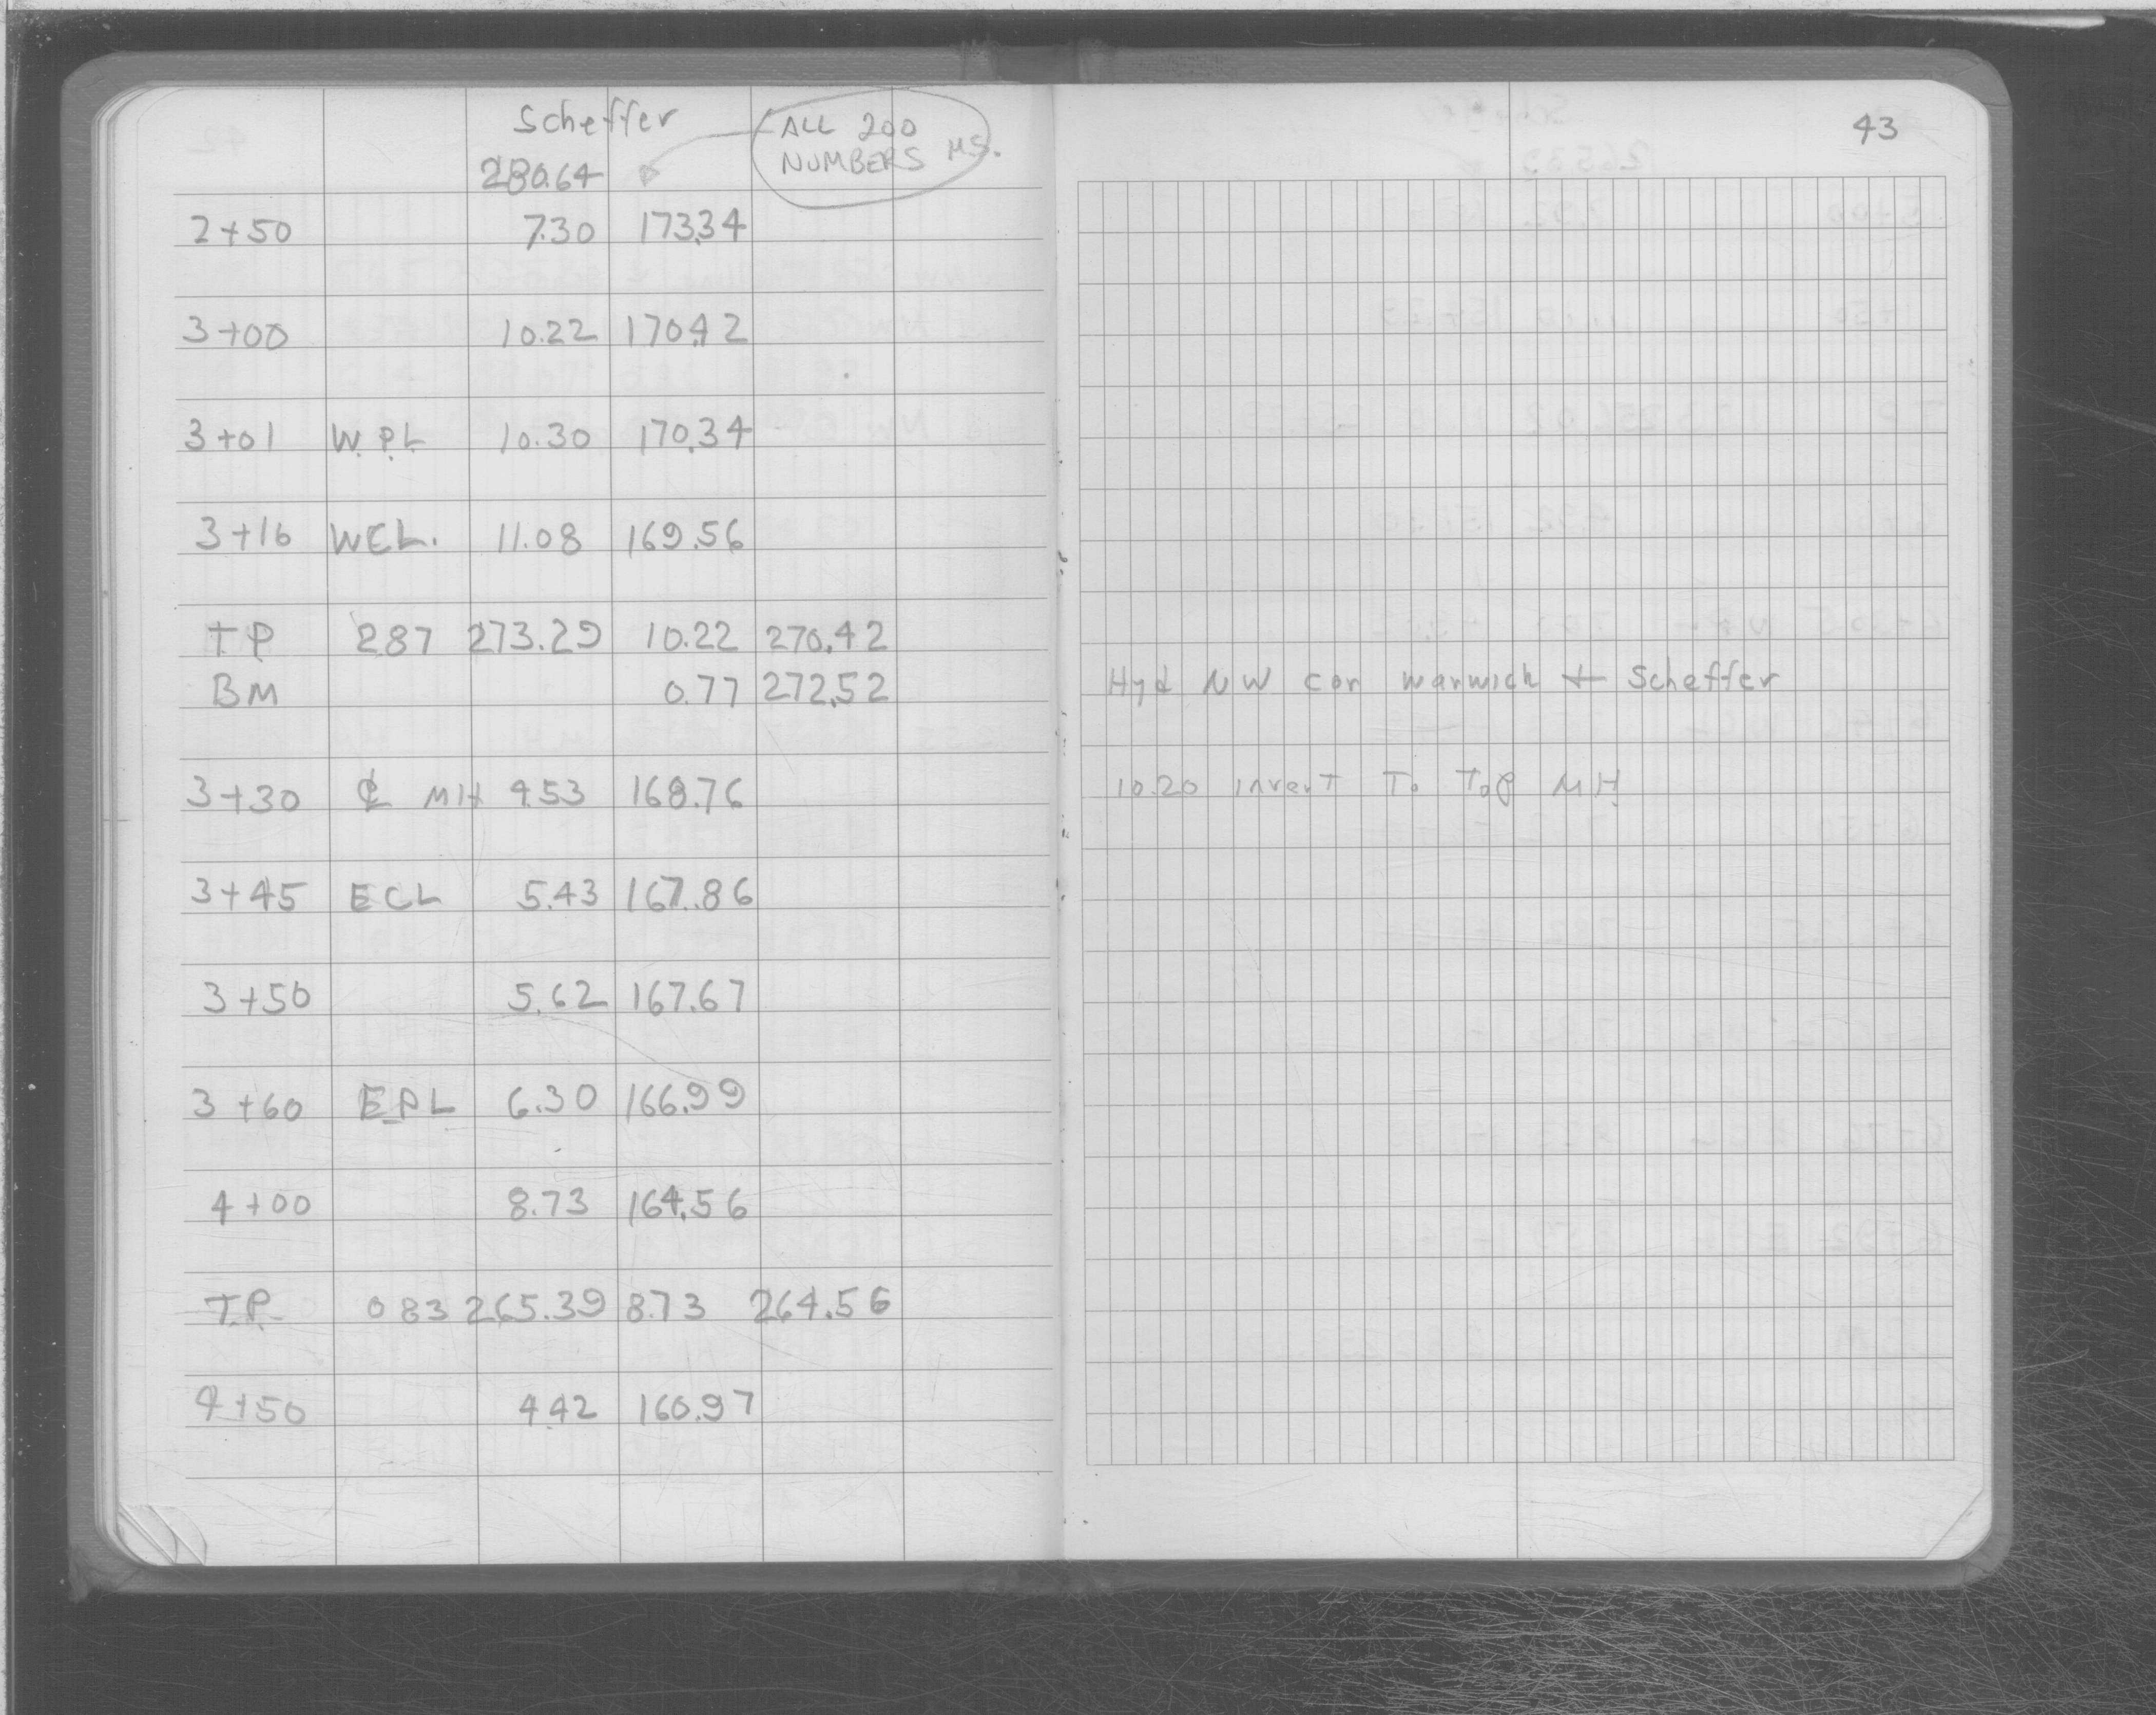 Scheffer
ALL 200
NUMBERS M.S.
43
280.64
2+50 7.30 173.34
3+00 10.22 170.42
3+01 W.P.L 10.30 170.34
3+16 WCL. 11.08 169.56
TP 2.87 273.29 10.22 270.42
BM 0.77 272.52 Hyd NW cor Warwich + Scheffer
3+30 ℄ MH 4.53 168.76 10.20 invert To Top MH
3+45 ECL 5.43 167.86
3+50 5.62 167.67
3+60 E.P.L 6.30 166.99
4+00 8.73 164.56
T.P. 0 83 265.39 8.73 264.56
4+50 4.42 160.97